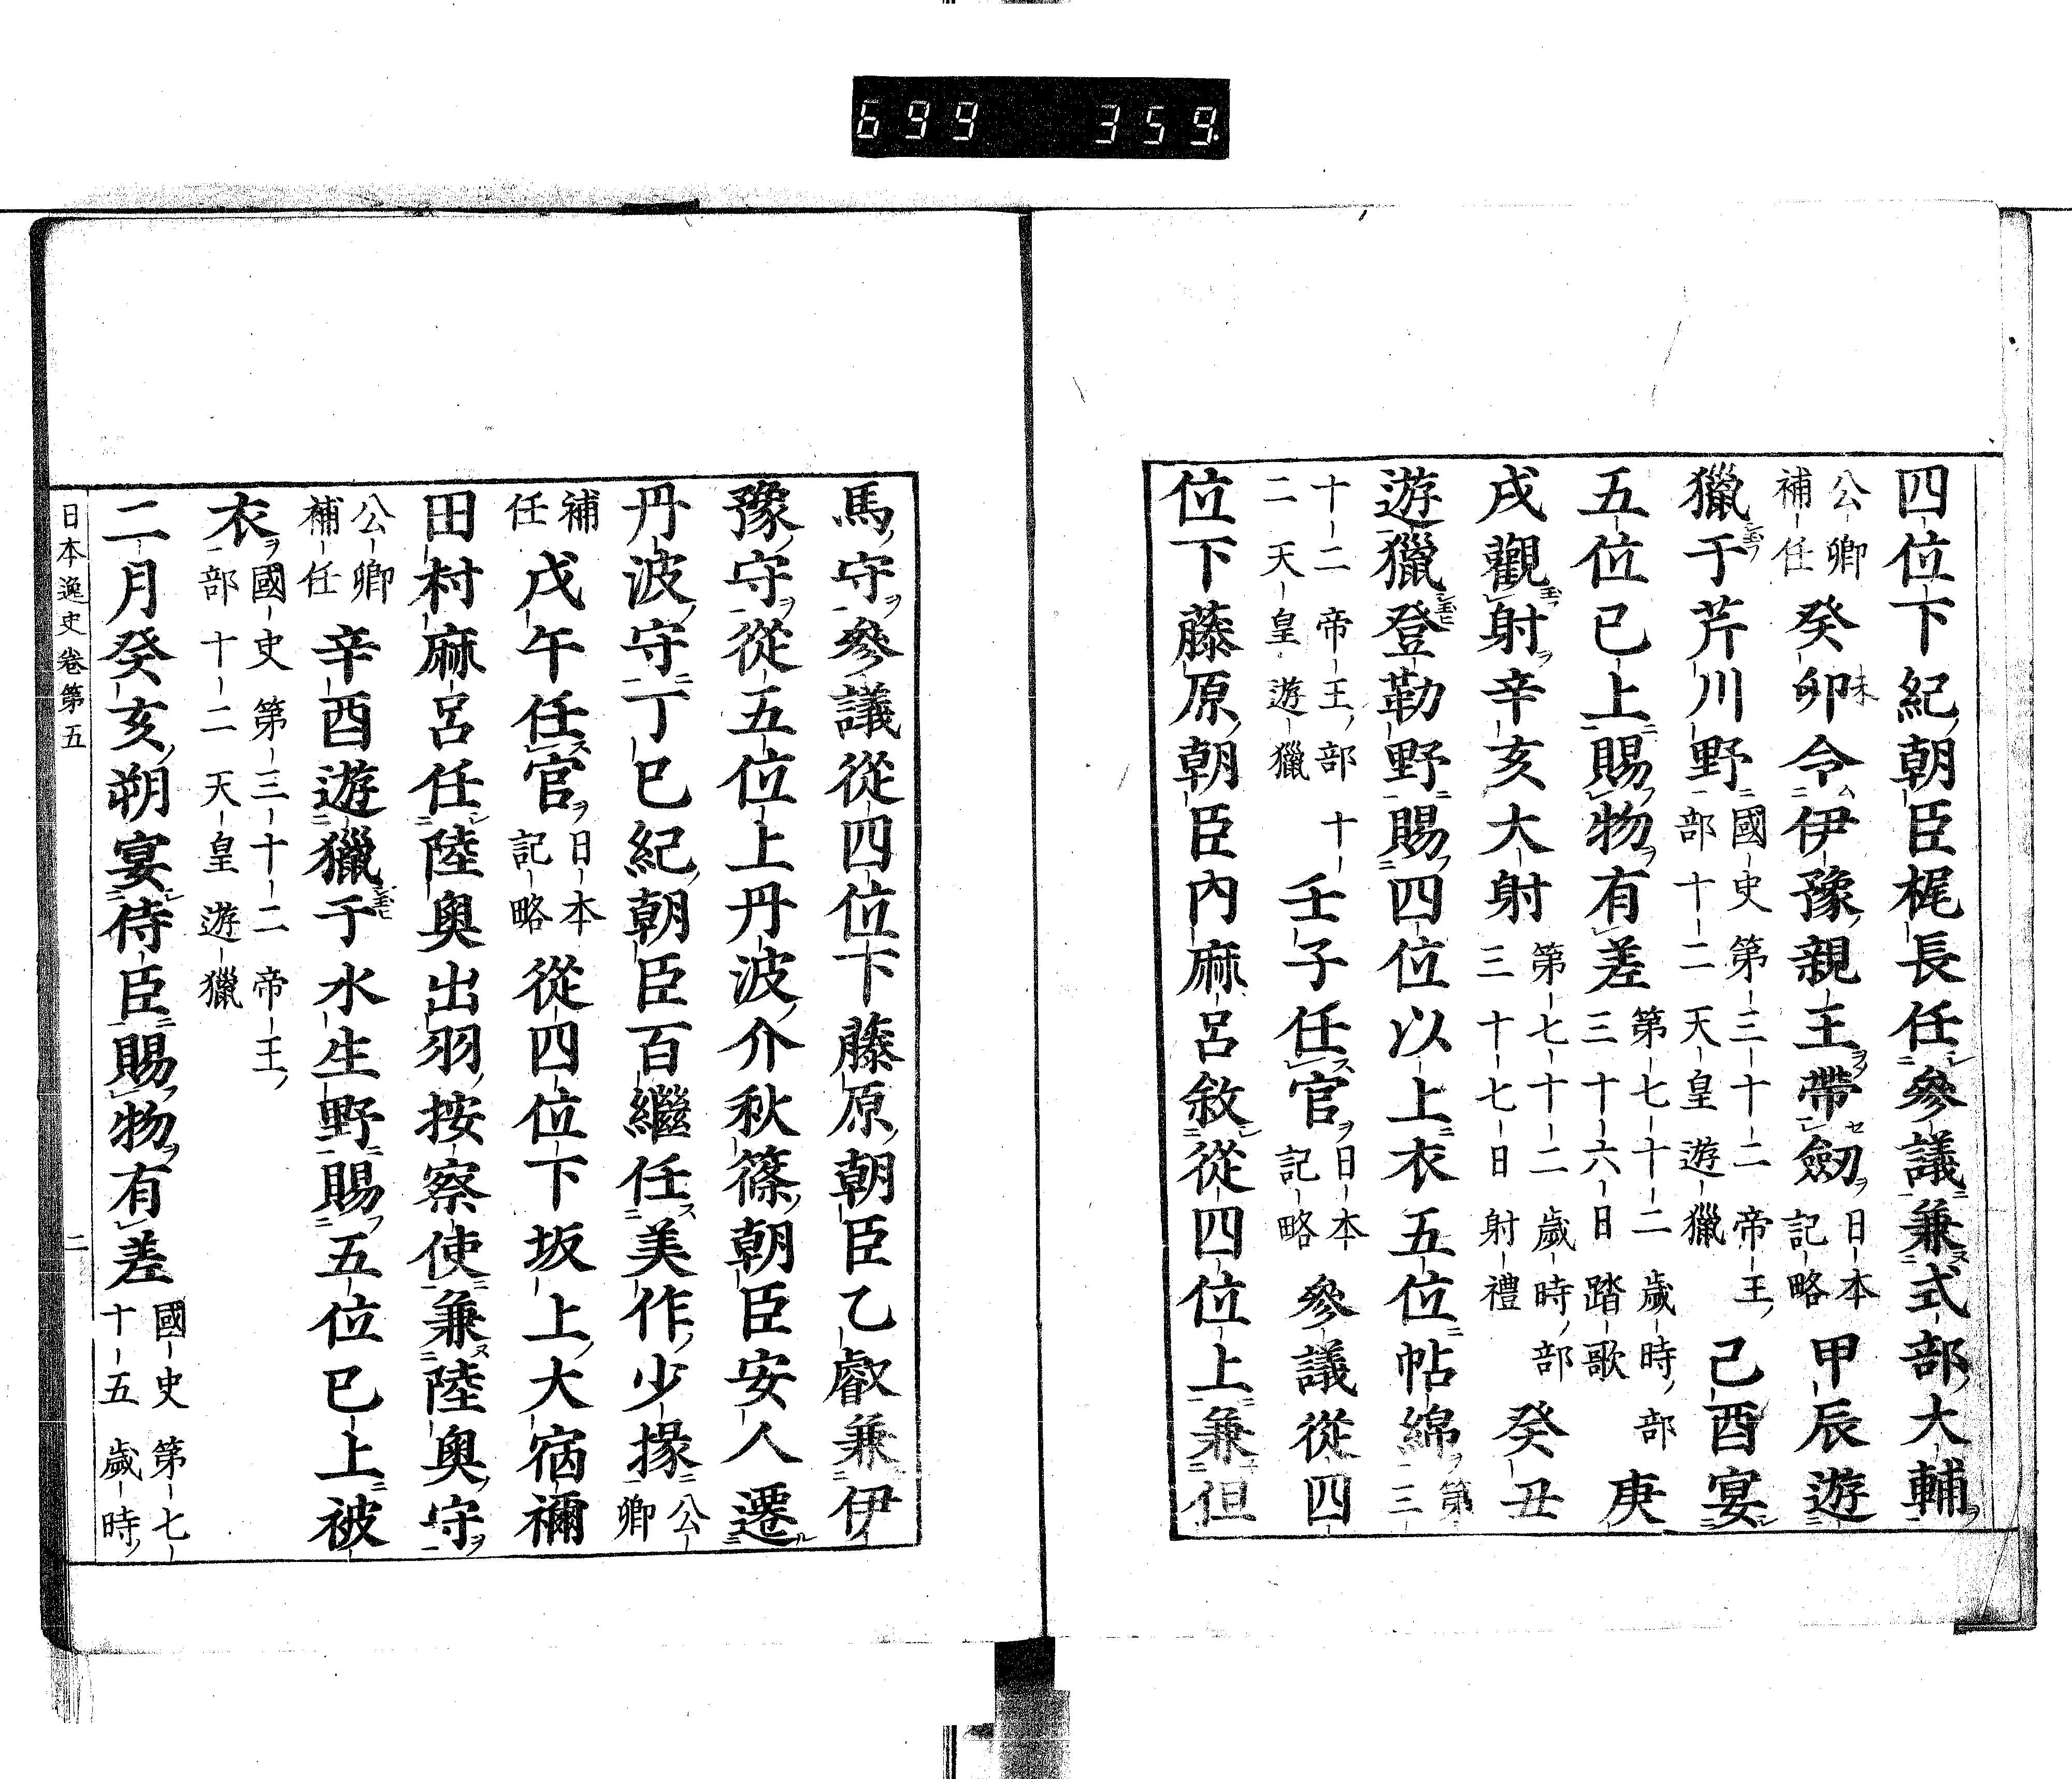 699 359
四位下紀朝臣梶長任參議兼式部大輔
公卿補任 癸卯令伊豫親王帶劒 日本記略 甲辰遊
未
獵于芹川野 國史第三十二帝王部十二天皇遊獵 己酉宴
五位已上賜物有差 第七十二歲時部三十六日踏歌 庚
戌觀射辛亥大射 第七十二歲時部三十七日射禮 癸丑
遊獵登勒野賜四位以上衣五位帖綿 第三
十二帝王部十二天皇遊獵 壬子任官 日本記略 參議從四
位下藤原朝臣內麻呂敘從四位上兼但
馬守參議從四位下藤原朝臣乙叡兼伊
豫守從五位上丹波介秋篠朝臣安人遷
丹波守丁巳紀朝臣百繼任美作少掾 公卿
補任 戊午任官 日本記略 從四位下坂上大宿禰
田村麻呂任陸奥出羽按察使兼陸奥守
公卿補任 辛酉遊獵于水生野賜五位已上被
衣 國史第三十二帝王部十二天皇遊獵
二月癸亥朔宴侍臣賜物有差 國史第七十五歲時
日本逸史卷第五 二